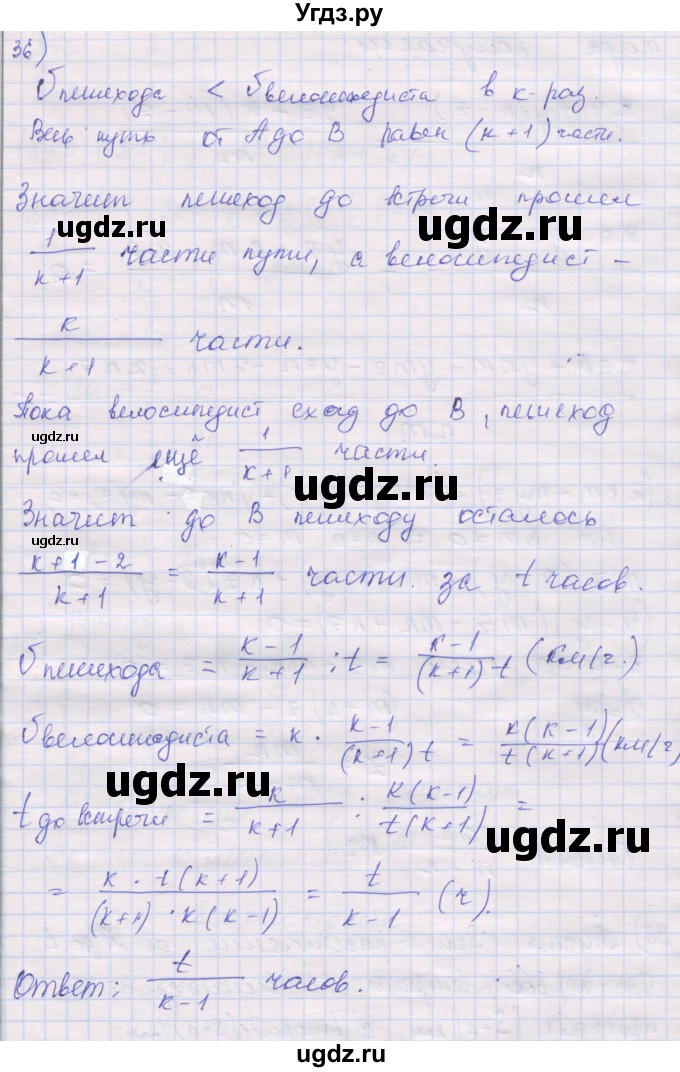 Угдз.ру
36)
υ пешехода < υ велосипедиста в к-раз.
Весь путь от А до В равен (к+1) части.
Значит пешеход до встречи прошел
ugdz.ru ugdz.ru
1/(к+1) части пути, а велосипедист –
к/(к+1) части.
Пока велосипедист ехал до В, пешеход
ugdz.ru
прошел ещё 1/(к+1) части.
ugdz.ru
ugdz.ru
Значит до В пешеходу осталось
(к+1-2)/(к+1) = (к-1)/(к+1) части за t часов.
υ пешехода = (к-1)/(к+1) : t = (к-1)/((к+1)t) (км/ч.)
υ велосипедиста = к · (к-1)/((к+1)t) = к(к-1)/(t(к+1)) (км/ч)
ugdz.ru
t до встречи = к/(к+1) : к(к-1)/(t(к+1)) =
ugdz.ru
= (к · t(к+1))/((к+1) · к(к-1)) = t/(к-1) (ч).
ugdz.ru
Ответ: t/(к-1) часов.
ugdz.ru